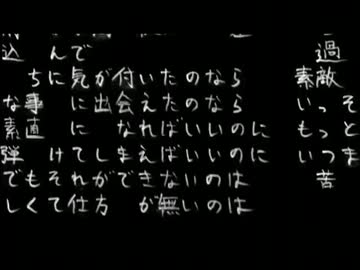 込 んで
ちに気が付いたのなら
な事 に出会えたのなら
素直 に なればいいのに
弾 けてしまえばいいのに
でもそれができないのは
しくて仕方 が無いのは
過
素敵
いっそ
もっと
いつま
苦